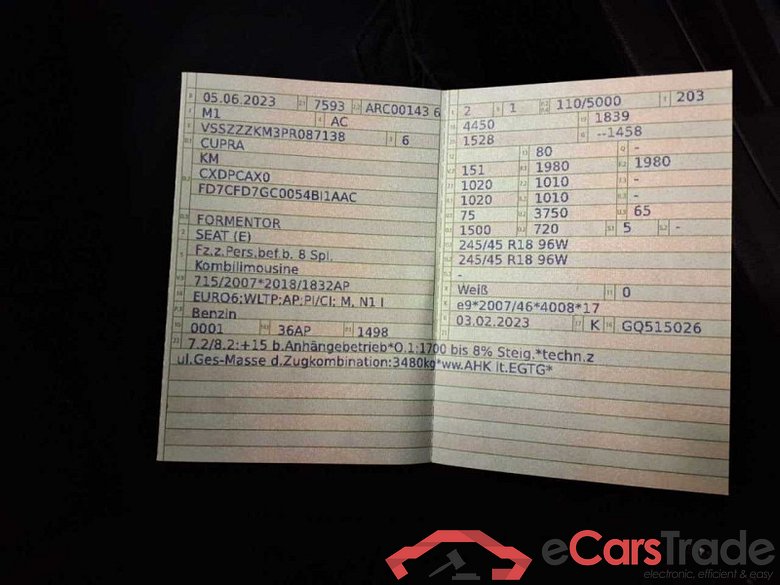 05.06.2023 7593 ARC00143 6
M1 AC
VSSZZZKM3PR087138 6
CUPRA
KM
CXDPCAX0
FD7CFD7GC0054BI1AAC
FORMENTOR
SEAT (E)
Fz.z.Pers.bef.b. 8 Spl.
Kombilimousine
715/2007*2018/1832AP
EURO6;WLTP;AP;PI/CI; M, N1 I
Benzin
0001 36AP 1498
7.2/8.2:+15 b.Anhängebetrieb*O.1:1700 bis 8% Steig.*techn.z
ul.Ges-Masse d.Zugkombination:3480kg*ww.AHK lt.EGTG*
2 1 110/5000 203
4450 1839
1528 --1458
80 -
151 1980 1980
1020 1010 -
1020 1010 -
75 3750 65
1500 720 5 -
245/45 R18 96W
245/45 R18 96W
-
Weiß 0
e9*2007/46*4008*17
03.02.2023 K GQ515026
eCarsTrade
electronic, efficient & easy